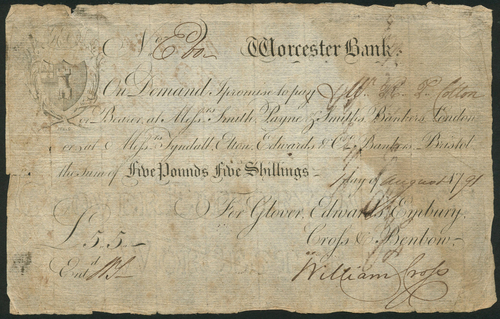 No. E 60 Worcester Bank.
On Demand I promise to pay Mr. R. F. Cotton
or Bearer, at Messrs Smith, Payne & Smiths, Bankers London
or at Messrs Tyndall, Elton, Edwards & Co. Bankers Bristol
the sum of Five Pounds Five Shillings
1 day of August 1791
For Glover, Edwards, Embury,
£5.5.— Cross & Benbow
Entd
William Cross